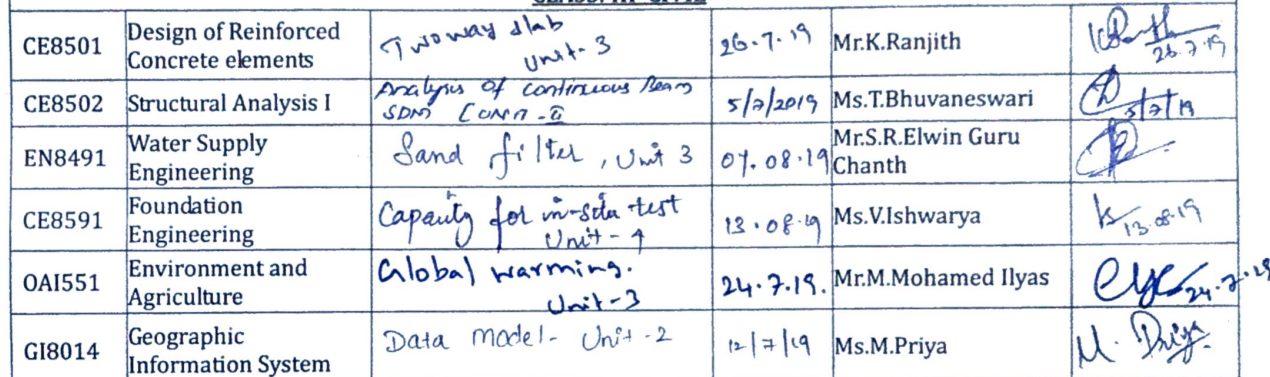 CE8501 Design of Reinforced Concrete elements Two way slab Unit-3 26.7.19 Mr.K.Ranjith 26.7.19
CE8502 Structural Analysis I Analysis of continuous Beam SDM 5/7/2019 Ms.T.Bhuvaneswari 5/7/19
EN8491 Water Supply Engineering Sand filter, Unit 3 07.08.19 Mr.S.R.Elwin Guru Chanth
CE8591 Foundation Engineering Capacity for in-situ test Unit- 13.08.19 Ms.V.Ishwarya 13.08.19
OAI551 Environment and Agriculture Global warming. Unit-3 24.7.19. Mr.M.Mohamed Ilyas 24.7.19
GI8014 Geographic Information System Data model- Unit-2 12/7/19 Ms.M.Priya M. Priya